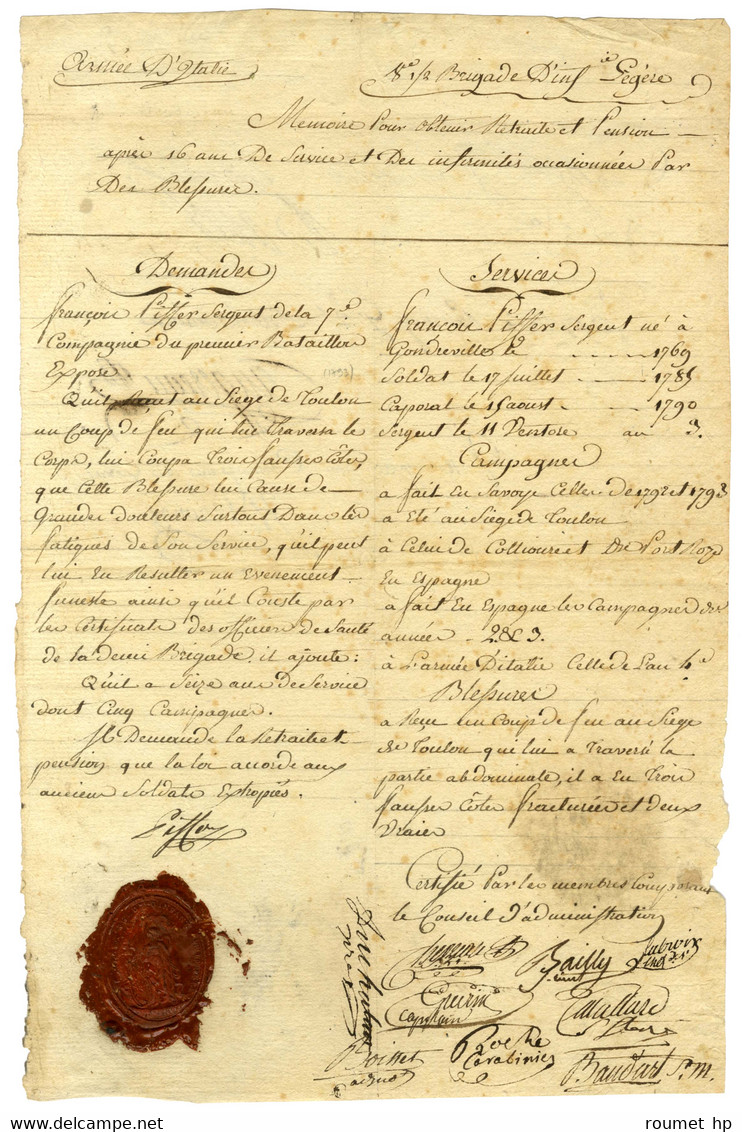 Armée D'Italie
8e 1/2 Brigade D'inf ie Légère
Memoire Pour obtenir Retraite et Pension
après 16 ans De Service et Des infirmités occasionnées Par
Des Blessures.
Demandes
françois Piffer Sergent de la 7e
Compagnie du premier Bataillon
Expose
Qu'il au Siege de Toulon
un Coup de feu qui lui Traversa le
Corps, lui Coupa Trois fausses Côtes,
que Cette Blessure lui Cause de
Grandes douleurs Surtout Dans les
fatigues de Son Service, qu'il peut
lui En Resulter un Evenement
funeste ainsi qu'il Conste par
les Certificats des officiers de Santé
de la demi Brigade, il ajoute:
Qu'il a Seize ans de Service
dont Cinq Campagnes.
Il Demande la Retraite et
pension que la loi accorde aux
anciens Soldats Estropiés.
Piffer
Services
françois Piffer Sergent né à
Gondreville le 1769
Soldat le 17 Juillet 1785
Caporal le 15 aoust 1790
Sergent le 11 Ventose au 3.
Campagnes
a fait En Savoye Celles de 1792 et 1793
a Eté au Siege de Toulon
à Celui de Collioure et De Port
En Espagne
a fait En Espagne les Campagnes des
années 2 & 3.
à L'armée D'italie Celle de L'an 4e
Blessures
a Reçu un Coup de feu au Siege
de Toulon qui lui a Traversé la
partie abdominale, il a Eu Trois
fausses Côtes fracturées et deux
Vraies
Certifié Par les membres Composant
le Conseil d'administration
Bailly
Guérin
Capitaine
Boisset
Roche
Carabinier
Baudart S. M.
www.delcampe.net
roumet hp